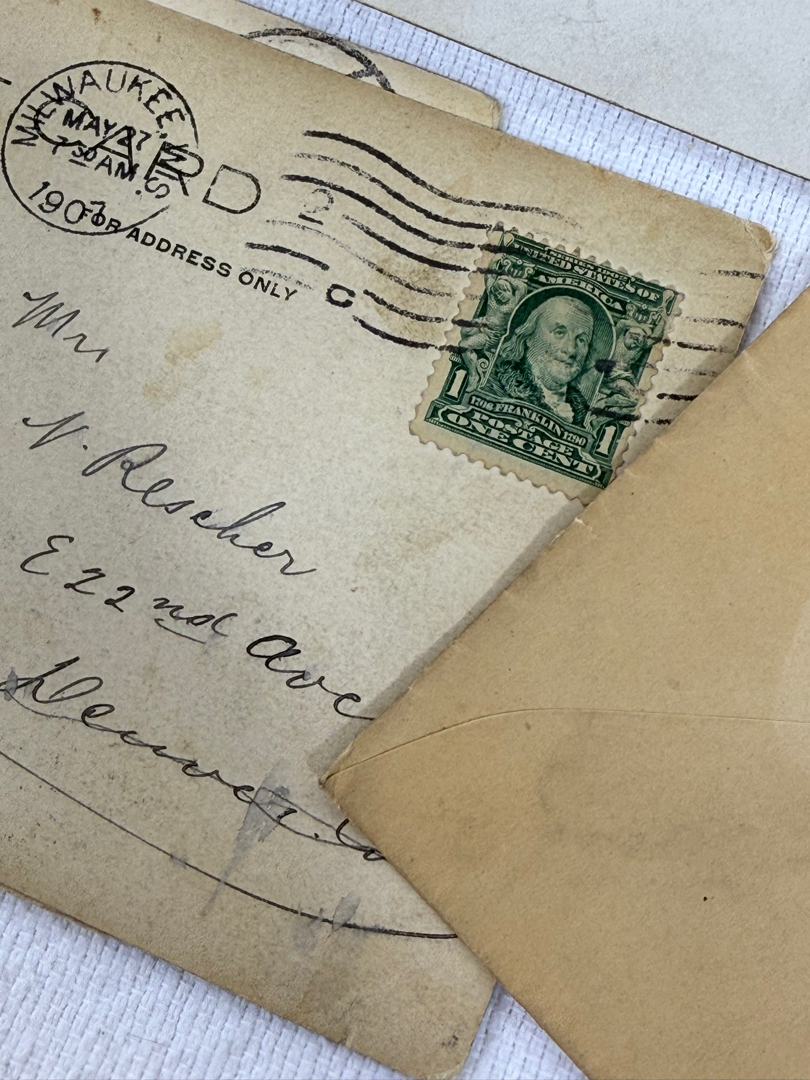 MILWAUKEE, WIS.
MAY 27
7 30 AM
1907
CARD
FOR ADDRESS ONLY
2
C
UNITED STATES OF
AMERICA
1706 FRANKLIN 1790
POSTAGE
1 ONE CENT 1
Mr
N. Rescher
E 22nd Ave
Denver. Co